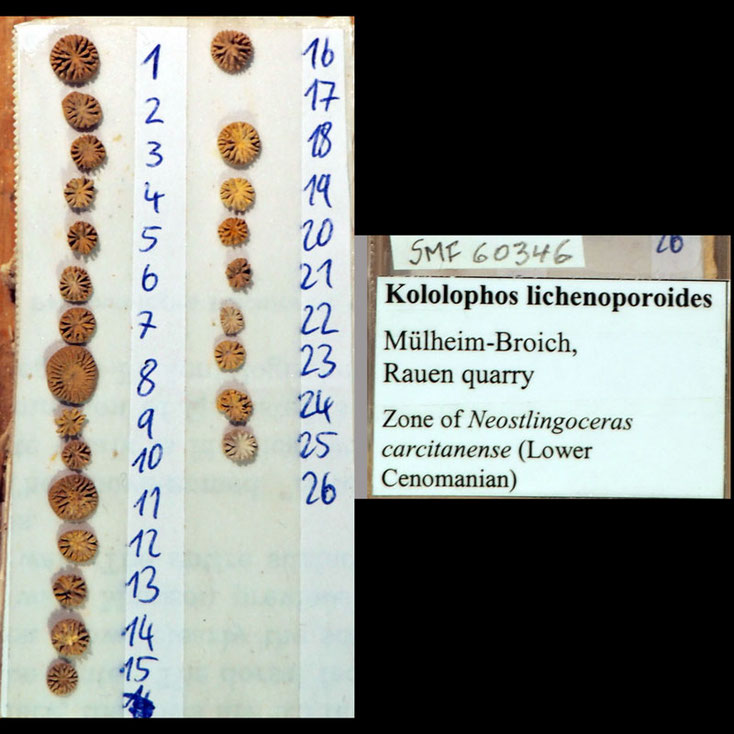 1
2
3
4
5
6
7
8
9
10
11
12
13
14
15
16
17
18
19
20
21
22
23
24
25
26
SMF 60346
26
Kololophos lichenoporoides
Mülheim-Broich,
Rauen quarry
Zone of Neostlingoceras
carcitanense (Lower
Cenomanian)